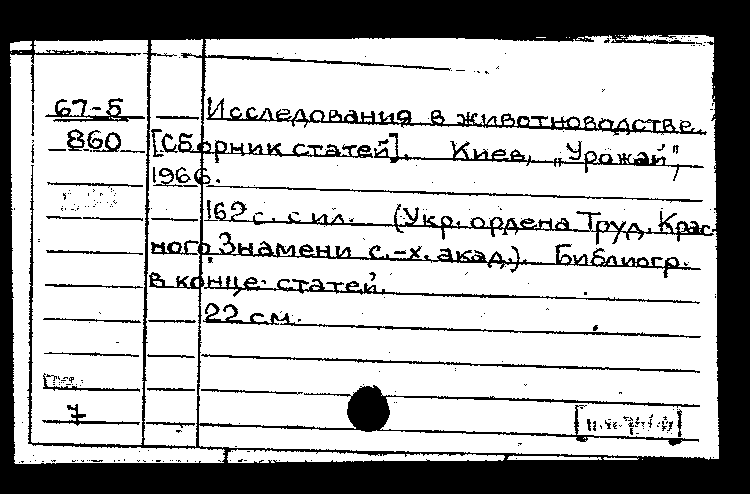 67-5 Исследования в животноводстве.
860 [Сборник статей]. Киев, „Урожай",
1966.
162 с. с ил. (Укр. ордена Труд. Крас-
ного Знамени с.-х. акад.). Библиогр.
в конце статей.
22 см.
7